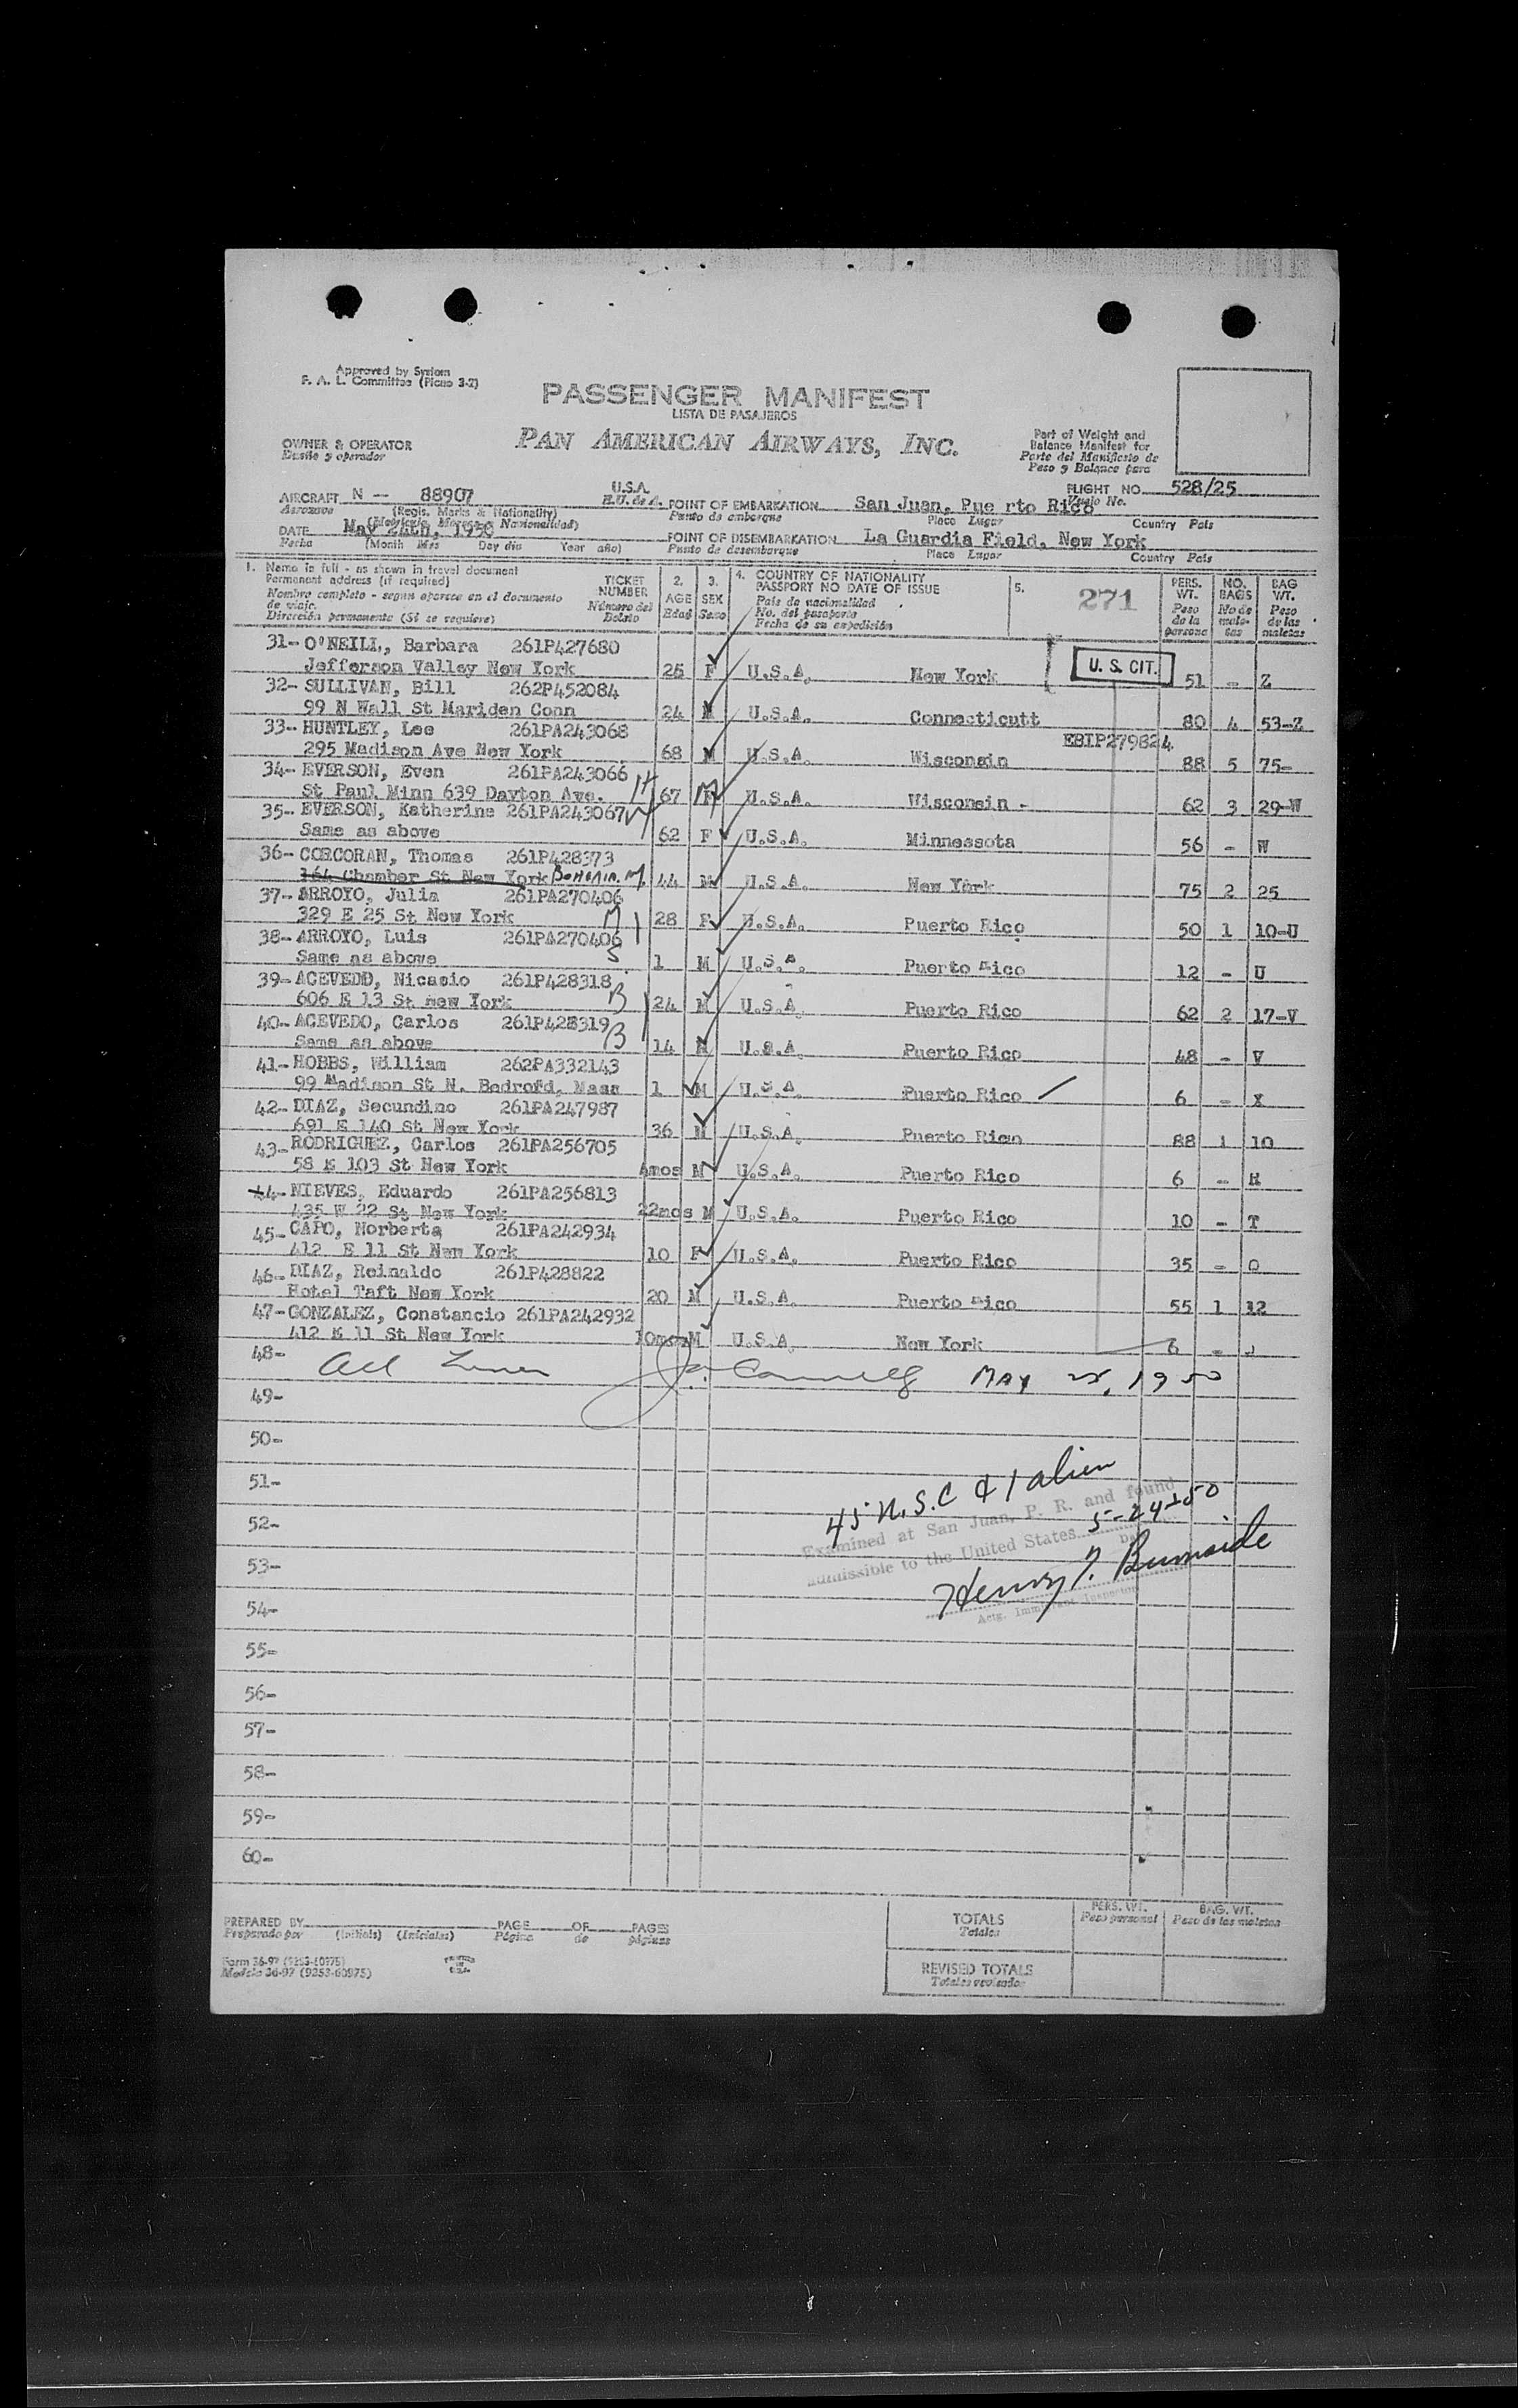 Approved by System
F. A. L. Committee (Picao 3-2)
PASSENGER MANIFEST
LISTA DE PASAJEROS
PAN AMERICAN AIRWAYS, INC.
OWNER & OPERATOR
Dueño y operador
Part of Weight and
Balance Manifest for
Parte del Manifiesto de
Peso y Balance para
FLIGHT NO. 528/25
Vuelo No.
AIRCRAFT N — 88907 U.S.A.
Aeronave (Regis. Marks & Nationality) E.U. de A.
(Matrícula, Marcas y Nacionalidad)
POINT OF EMBARKATION San Juan, Pue rto Rico
Punto de embarque Place Lugar Country País
DATE May 24th, 1950
Fecha (Month Mes Day día Year año)
POINT OF DISEMBARKATION La Guardia Field, New York
Punto de desembarque Place Lugar Country País
1. Name in full - as shown in travel document
Permanent address (if required)
Nombre completo - segun aparece en el documento
de viaje.
Dirección permanente (Si se requiere)
TICKET
NUMBER
Número del
Boleto
2.
AGE
Edad
3.
SEX
Sexo
4. COUNTRY OF NATIONALITY
PASSPORT NO DATE OF ISSUE
País de nacionalidad
No. del pasaporte
Fecha de su expedición
5.
271
PERS.
WT.
Peso
de la
persona
NO.
BAGS
No de
male-
tas
BAG
WT.
Peso
de las
maletas
31- O'NEILL, Barbara 261P427680
Jefferson Valley New York 25 F U.S.A. New York U. S. CIT. 51 - Z
32- SULLIVAN, Bill 262P452084
99 N Wall St Mariden Conn 24 M U.S.A. Connecticutt 80 4 53-Z
33- HUNTLEY, Lee 261PA243068 EBIP279824
295 Madison Ave New York 68 M U.S.A. Wisconsin 88 5 75-
34- EVERSON, Even 261PA243066 H
St Paul Minn 639 Dayton Ave. 67 M U.S.A. Wisconsin - 62 3 29-W
35- EVERSON, Katherine 261PA243067 W
Same as above 62 F U.S.A. Minnesota 56 - W
36- CORCORAN, Thomas 261P428373
164 Chamber St New York 44 M U.S.A. New York 75 2 25
37- ARROYO, Julia 261PA270406
329 E 25 St New York M 28 F U.S.A. Puerto Rico 50 1 10-U
38- ARROYO, Luis 261PA270406
Same as above S 1 M U.S.A. Puerto Rico 12 - U
39- ACEVEDO, Nicasio 261P428318
606 E 13 St New York B 24 M U.S.A. Puerto Rico 62 2 17-V
40- ACEVEDO, Carlos 261P428319
Same as above B 14 M U.S.A. Puerto Rico 48 - V
41- HOBBS, William 262PA332143
99 Madison St N. Bedrofd, Mass 1 M U.S.A. Puerto Rico 6 - X
42- DIAZ, Secundino 261PA247987
691 E 140 St New York 36 M U.S.A. Puerto Rico 88 1 10
43- RODRIGUEZ, Carlos 261PA256705
58 E 103 St New York 4mos M U.S.A. Puerto Rico 6 - R
44- NIEVES, Eduardo 261PA256813
435 W 22 St New York 22mos M U.S.A. Puerto Rico 10 - T
45- CAPO, Norberta 261PA242934
412 E 11 St New York 10 F U.S.A. Puerto Rico 35 - O
46- DIAZ, Reinaldo 261P428822
Hotel Taft New York 20 M U.S.A. Puerto Rico 55 1 12
47- GONZALEZ, Constancio 261PA242932
412 E 11 St New York 10mos M U.S.A. New York 6 -
48- May 25, 1950
49-
50-
51-
45 U.S.C & 1 alien
52-
Examined at San Juan, P. R. and found
admissible to the United States 5-24-50
Date
53-
Henry J. Burnside
Actg. Immigrant Inspector
54-
55-
56-
57-
58-
59-
60-
PREPARED BY PAGE OF PAGES
Preparado por (Initials) (Iniciales) Página de páginas
TOTALS
Totales
PERS. WT.
Peso personal
BAG. WT.
Peso de las maletas
REVISED TOTALS
Totales revisados
Form 36-97 (9253-60975)
Modelo 36-97 (9253-60975)